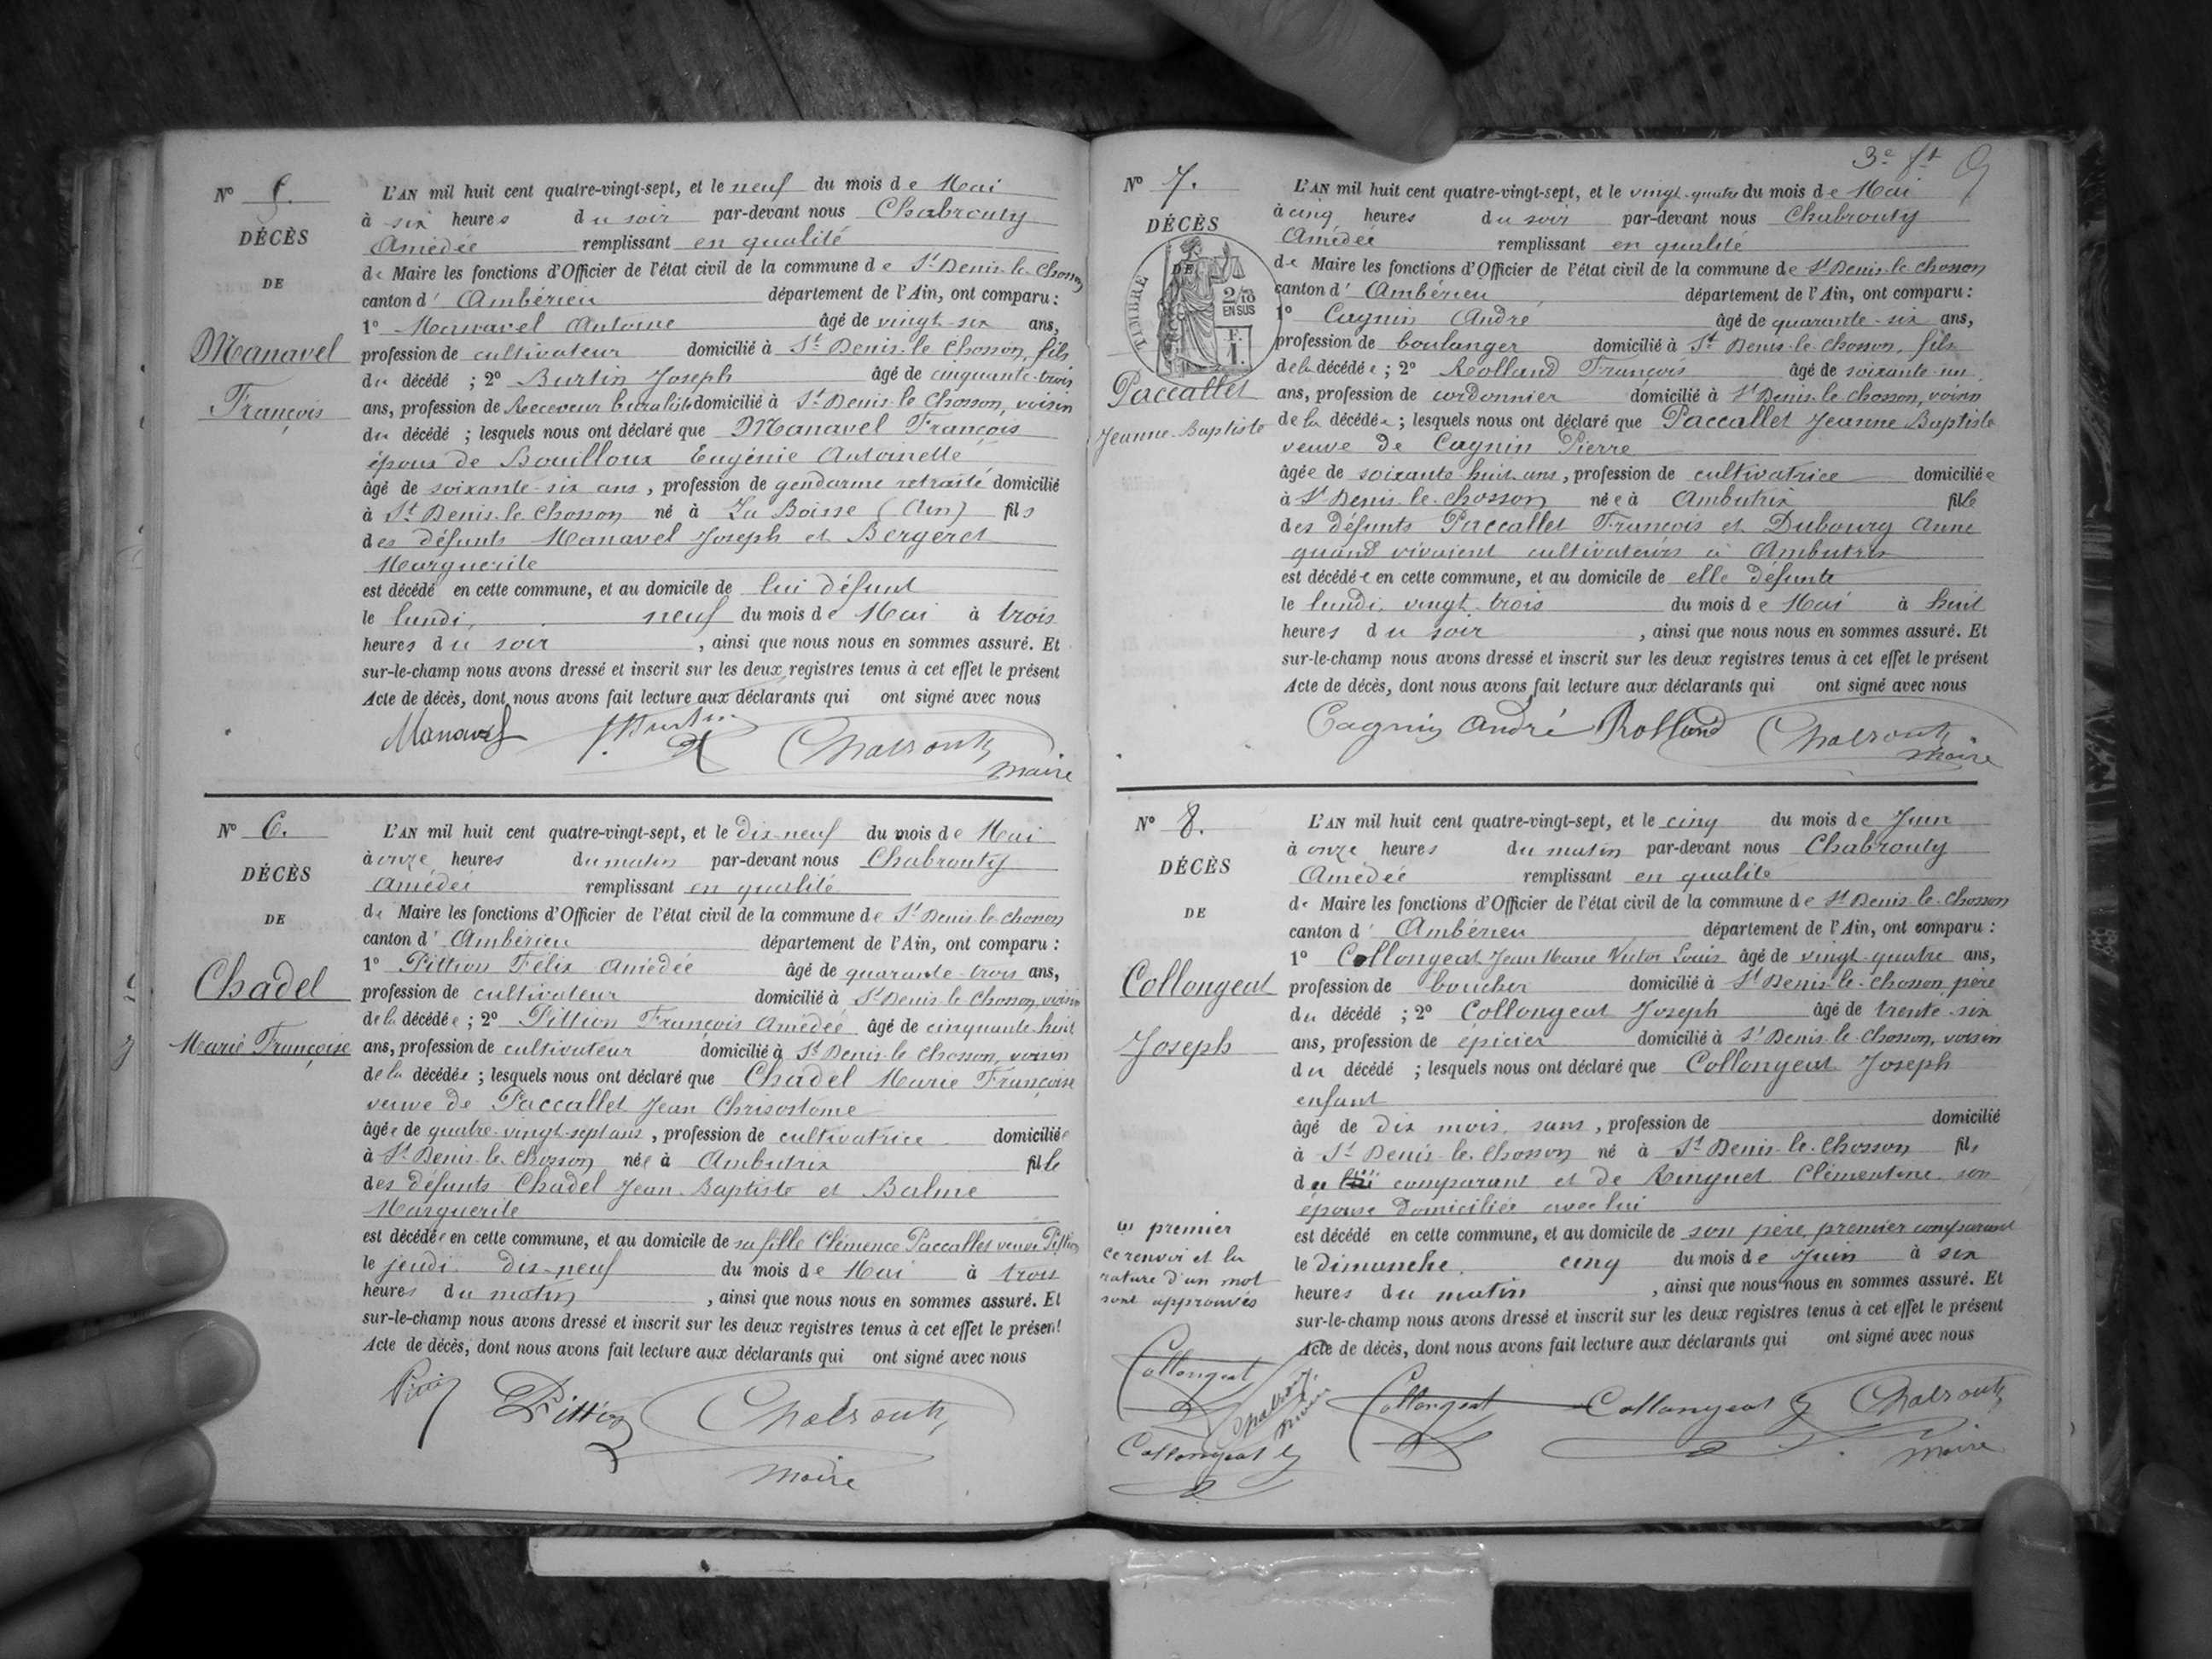 N° 5.
DÉCÈS
DE
Manavel
François
L'AN mil huit cent quatre-vingt-sept, et le neuf du mois de Mai
à six heures du soir par-devant nous Chabrouty
Amédée remplissant en qualité
de Maire les fonctions d'Officier de l'état civil de la commune de St Denis-le-Chosson
canton d' Ambérieu département de l'Ain, ont comparu :
1° Manavel Antoine âgé de vingt-six ans,
profession de cultivateur domicilié à St Denis-le-Chosson, fils
du décédé ; 2° Burtin Joseph âgé de cinquante-trois
ans, profession de Receveur buraliste domicilié à St Denis-le-Chosson, voisin
du décédé ; lesquels nous ont déclaré que Manavel François
époux de Bouilloux Eugénie Antoinette
âgé de soixante-six ans, profession de gendarme retraité domicilié
à St Denis-le-Chosson né à La Boisse (Ain) fils
des défunts Manavel Joseph et Bergeret
Marguerite
est décédé en cette commune, et au domicile de lui défunt
le lundi, neuf du mois de Mai à trois
heures du soir, ainsi que nous nous en sommes assuré. Et
sur-le-champ nous avons dressé et inscrit sur les deux registres tenus à cet effet le présent
Acte de décès, dont nous avons fait lecture aux déclarants qui ont signé avec nous
Manavel J. Burtin Chabrouty
maire
N° 6.
DÉCÈS
DE
Chadel
Marie Françoise
L'AN mil huit cent quatre-vingt-sept, et le dix-neuf du mois de Mai
à onze heures du matin par-devant nous Chabrouty
Amédée remplissant en qualité
de Maire les fonctions d'Officier de l'état civil de la commune de St Denis-le-Chosson
canton d' Ambérieu département de l'Ain, ont comparu :
1° Pittion Félix Amédée âgé de quarante-trois ans,
profession de cultivateur domicilié à St Denis-le-Chosson, voisin
de la décédée ; 2° Pittion François Amédée âgé de cinquante-huit
ans, profession de cultivateur domicilié à St Denis-le-Chosson, voisin
de la décédée ; lesquels nous ont déclaré que Chadel Marie Françoise
veuve de Paccallet Jean Chrisostôme
âgée de quatre-vingt-sept ans, profession de cultivatrice domiciliée
à St Denis-le-Chosson née à Ambutrix fille
des défunts Chadel Jean-Baptiste et Balme
Marguerite
est décédée en cette commune, et au domicile de sa fille Clémence Paccallet veuve Pittion
le jeudi dix-neuf du mois de Mai à trois
heures du matin, ainsi que nous nous en sommes assuré. Et
sur-le-champ nous avons dressé et inscrit sur les deux registres tenus à cet effet le présent
Acte de décès, dont nous avons fait lecture aux déclarants qui ont signé avec nous
Pittion Chabrouty
maire
3e ft
N° 7.
DÉCÈS
DE
TIMBRE
2/10
EN SUS
F.
1.
Paccallet
Jeanne-Baptiste
L'AN mil huit cent quatre-vingt-sept, et le vingt-quatre du mois de Mai
à cinq heures du soir par-devant nous Chabrouty
Amédée remplissant en qualité
de Maire les fonctions d'Officier de l'état civil de la commune de St Denis-le-Chosson
canton d' Ambérieu département de l'Ain, ont comparu :
1° Cagnin André âgé de quarante-six ans,
profession de boulanger domicilié à St Denis-le-Chosson, fils
de la décédée ; 2° Rolland François âgé de soixante-un
ans, profession de cordonnier domicilié à St Denis-le-Chosson, voisin
de la décédée ; lesquels nous ont déclaré que Paccallet Jeanne Baptiste
veuve de Cagnin Pierre
âgée de soixante-huit ans, profession de cultivatrice domiciliée
à St Denis-le-Chosson née à Ambutrix fille
des défunts Paccallet François et Dubourg Anne
quand vivaient cultivateurs à Ambutrix
est décédée en cette commune, et au domicile de elle défunte
le lundi, vingt-trois du mois de Mai à huit
heures du soir, ainsi que nous nous en sommes assuré. Et
sur-le-champ nous avons dressé et inscrit sur les deux registres tenus à cet effet le présent
Acte de décès, dont nous avons fait lecture aux déclarants qui ont signé avec nous
Cagnin André Rolland Chabrouty
maire
N° 8.
DÉCÈS
DE
Collongeat
Joseph
L'AN mil huit cent quatre-vingt-sept, et le cinq du mois de Juin
à onze heures du matin par-devant nous Chabrouty
Amédée remplissant en qualité
de Maire les fonctions d'Officier de l'état civil de la commune de St Denis-le-Chosson
canton d' Ambérieu département de l'Ain, ont comparu :
1° Collongeat Jean Marie Victor Louis âgé de vingt-quatre ans,
profession de boucher domicilié à St Denis-le-Chosson, père
du décédé ; 2° Collongeat Joseph âgé de trente-six
ans, profession de épicier domicilié à St Denis-le-Chosson, voisin
du décédé ; lesquels nous ont déclaré que Collongeat Joseph
enfant
âgé de dix mois, sans, profession de domicilié
à St Denis-le-Chosson né à St Denis-le-Chosson fils
du comparant et de Ringuet Clémentine son
épouse domiciliée avec lui
est décédé en cette commune, et au domicile de son père, premier comparant
le dimanche, cinq du mois de Juin à six
heures du matin, ainsi que nous nous en sommes assuré. Et
sur-le-champ nous avons dressé et inscrit sur les deux registres tenus à cet effet le présent
Acte de décès, dont nous avons fait lecture aux déclarants qui ont signé avec nous
(1) premier
ce renvoi et la
rature d'un mot
sont approuvés
Collongeat
Chabrouty
maire
Collongeat
Collongeat Collongeat Chabrouty
maire